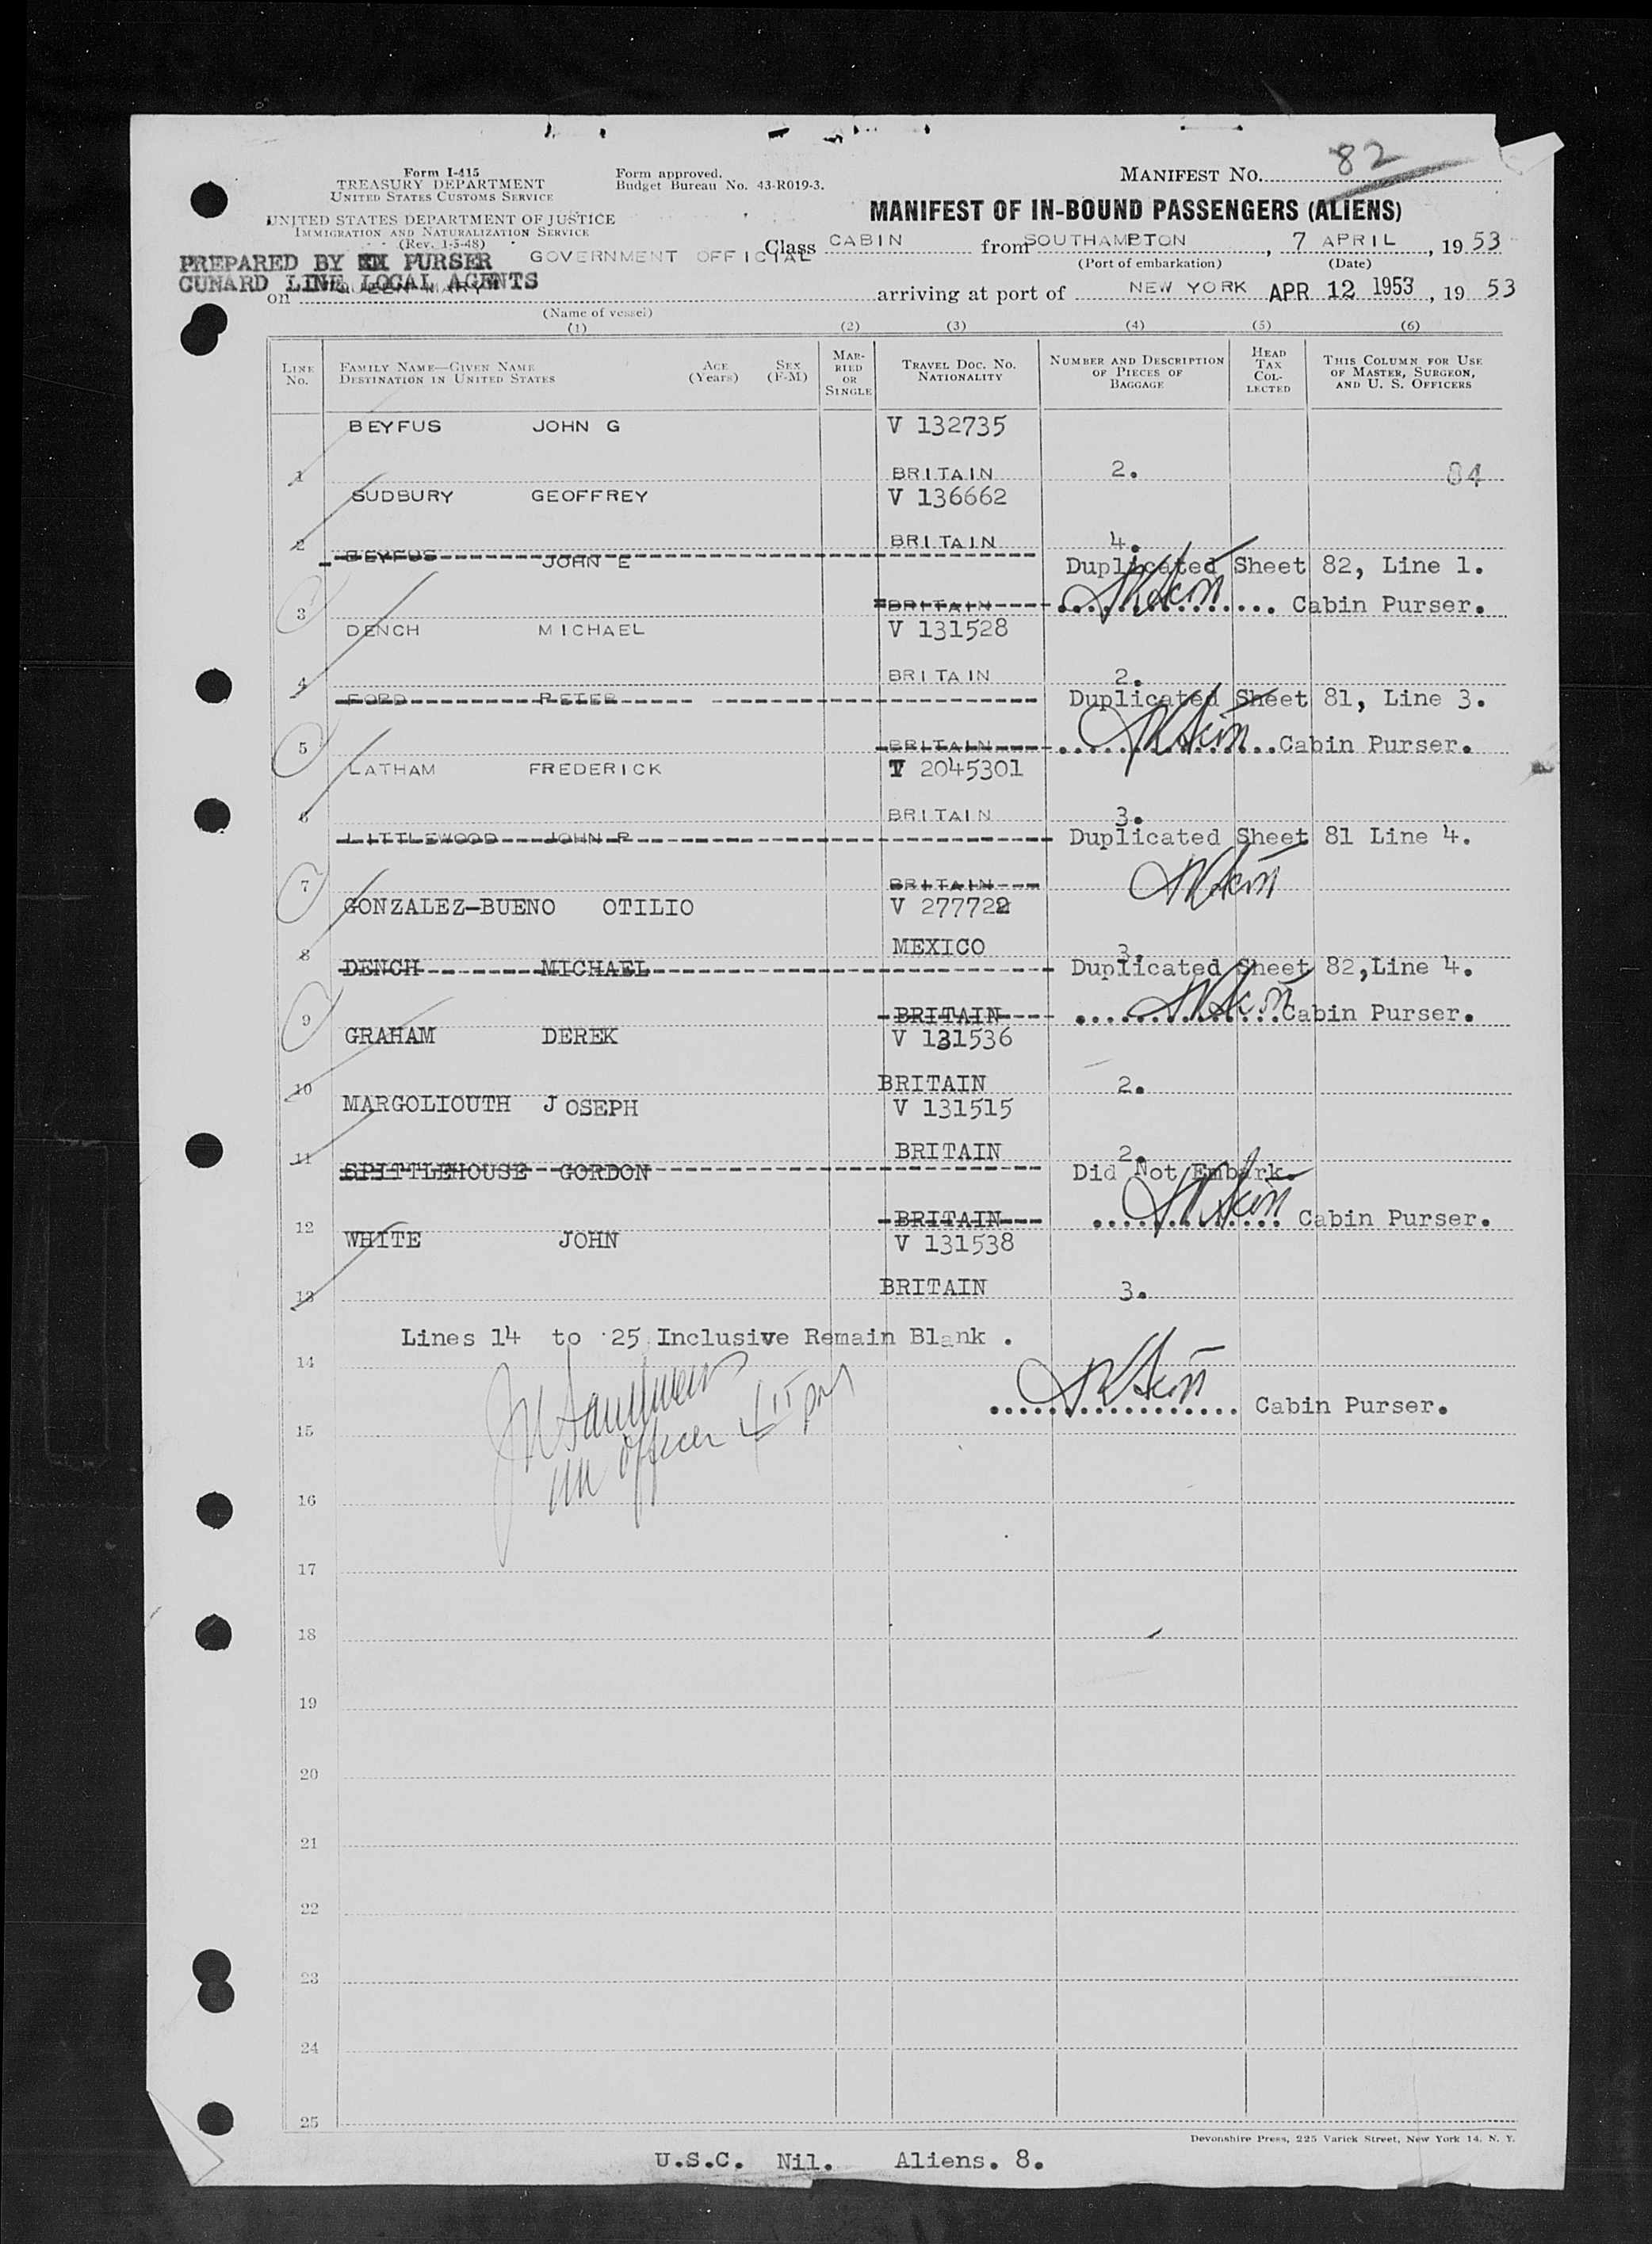 82
Form I-415
TREASURY DEPARTMENT
UNITED STATES CUSTOMS SERVICE
UNITED STATES DEPARTMENT OF JUSTICE
IMMIGRATION AND NATURALIZATION SERVICE
(Rev. 1-5-48)
Form approved.
Budget Bureau No. 43-R019-3.
MANIFEST NO.
MANIFEST OF IN-BOUND PASSENGERS (ALIENS)
PREPARED BY PURSER
CUNARD LINE LOCAL AGENTS
GOVERNMENT OFFICIAL Class CABIN from SOUTHAMPTON, 7 APRIL, 1953
(Port of embarkation) (Date)
on QUEEN MARY arriving at port of NEW YORK APR 12 1953, 19 53
(Name of vessel)
(1) (2) (3) (4) (5) (6)
LINE No. FAMILY NAME—GIVEN NAME DESTINATION IN UNITED STATES AGE (Years) SEX (F-M) MARRIED OR SINGLE TRAVEL DOC. NO. NATIONALITY NUMBER AND DESCRIPTION OF PIECES OF BAGGAGE HEAD TAX COLLECTED THIS COLUMN FOR USE OF MASTER, SURGEON, AND U. S. OFFICERS
BEYFUS JOHN G V 132735
1 BRITAIN 2. 84
SUDBURY GEOFFREY V 136662
2 BRITAIN 4.
BEYFUS JOHN E Duplicated Sheet 82, Line 1.
3 BRITAIN Cabin Purser.
DENCH MICHAEL V 131528
4 BRITAIN 2.
FORD PETER Duplicated Sheet 81, Line 3.
5 BRITAIN Cabin Purser.
LATHAM FREDERICK T 2045301
6 BRITAIN 3.
LITTLEWOOD JOHN R Duplicated Sheet 81 Line 4.
7 BRITAIN
GONZALEZ-BUENO OTILIO V 277722
8 MEXICO 3.
DENCH MICHAEL Duplicated Sheet 82,Line 4.
9 BRITAIN Cabin Purser.
GRAHAM DEREK V 131536
10 BRITAIN 2.
MARGOLIOUTH JOSEPH V 131515
11 BRITAIN 2.
SPITTLEHOUSE GORDON Did Not Embark.
12 BRITAIN Cabin Purser.
WHITE JOHN V 131538
13 BRITAIN 3.
Lines 14 to 25 Inclusive Remain Blank .
14
Cabin Purser.
15
Officer
16
17
18
19
20
21
22
23
24
25
Devonshire Press, 225 Varick Street, New York 14, N. Y.
U.S.C. Nil. Aliens. 8.